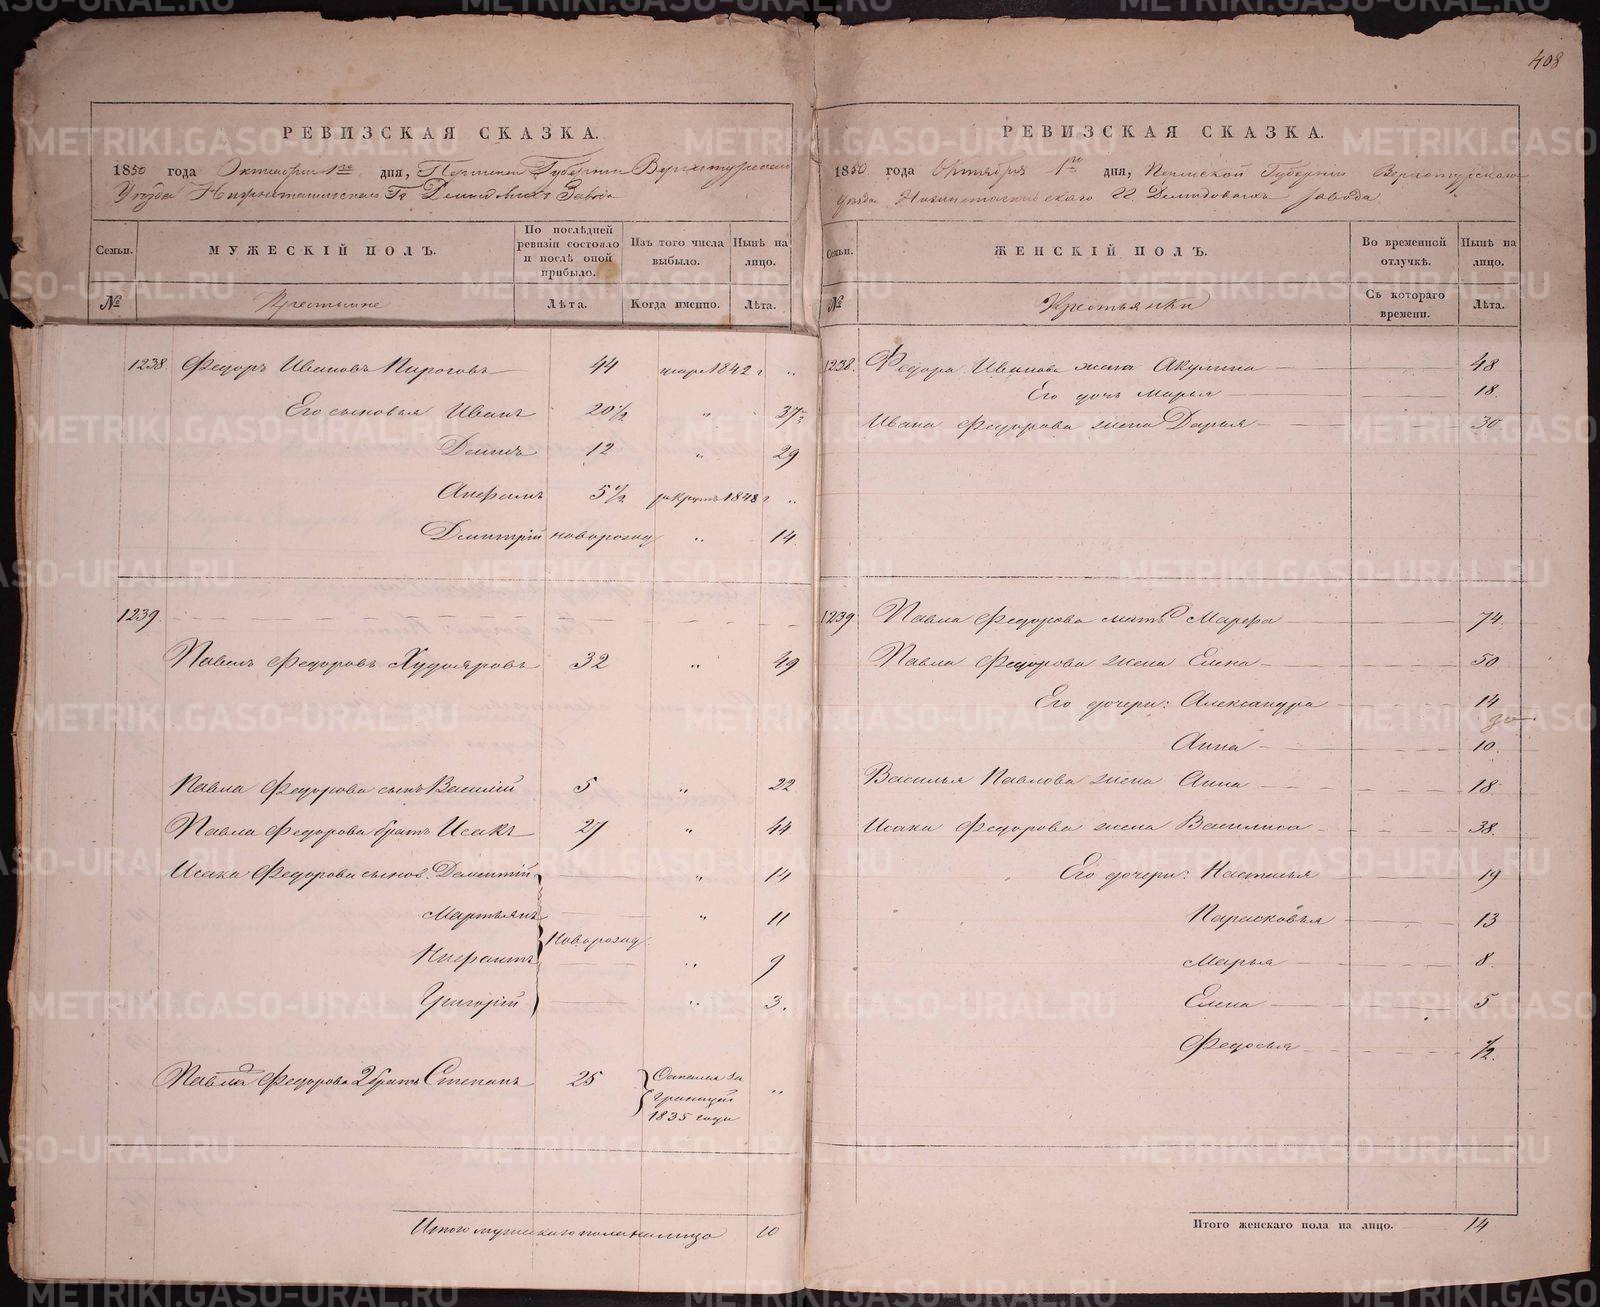 408
РЕВИЗСКАЯ СКАЗКА.
1850 года Октября 1го дня, Пермской Губернии Верхотурскаго
Уезда Нижнетагильскаго Гг Демидовыхъ Завода
Семьи.
МУЖЕСКІЙ ПОЛЪ.
По послѣдней ревизіи состояло и послѣ оной прибыло.
Изъ того числа выбыло.
Нынѣ на лицо.
№
Крестьяне
Лѣта.
Когда именно.
Лѣта.
1238 Федоръ Ивановъ Пироговъ 44 умеръ 1842 г „
Его сыновья Иванъ 20 1/2 „ 37
12 „ 29
5 1/2 рекрутъ 1848 г „
Дмитрій новорожд „ 14.
1239.
Павелъ Федоровъ Худояровъ 32 „ 49
Павла Федорова сынъ Василій 5 „ 22
Павла Федорова братъ Исакъ 27 „ 44
Исака Федорова сынов. Дементій „ 14
Мартьянъ „ 11
Новорожд.
„ 9
Григорій „ 3.
Павла Федорова 2 братъ Степанъ 25 границей 1835 года „
Итого мужескаго пола на лицо 10
РЕВИЗСКАЯ СКАЗКА.
1850 года Октября 1го дня, Пермской Губерніи Верхотурскаго
Уезда Нижнетагильскаго гг Демидовыхъ завода
Семьи.
ЖЕНСКІЙ ПОЛЪ.
Во временной отлучкѣ.
Нынѣ на лицо.
№
Крестьянки
Съ котораго времени.
Лѣта.
1238. Федора Иванова жена Акулина 48
Его дочь Марья 18.
Ивана Федорова жена Дарья 30
1239 Павла Федорова мать Марфа 74
Павла Федорова жена Елена 50
Его дочери: Александра 14
Анна 10.
Василья Павлова жена Анна 18
Исака Федорова жена Василиса 38
Его дочери: Настасья 19
Парасковья 13
Марья 8.
Елена 5
Федосья 1/2.
Итого женскаго пола на лицо. 14
METRIKI.GASO-URAL.RU